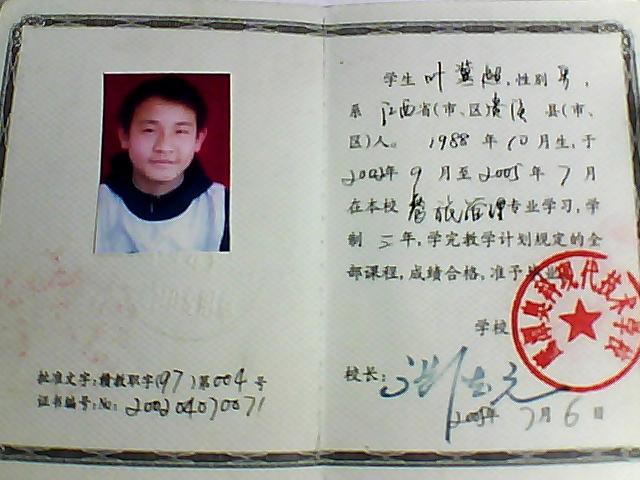 学生 叶冀 ,性别 男,
系 江西省(市、区)贵溪 县(市、
区)人。1988 年 10 月生,于
2002年 9 月至 2005 年 7 月
在本校 管理专业学习,学
制 三 年,学完教学计划规定的全
部课程,成绩合格,准予毕业
学校
现代技术学校
校长:
2005年 7月 6 日
批准文字:赣教职字(97)第004 号
证书编号:No: 200204070071